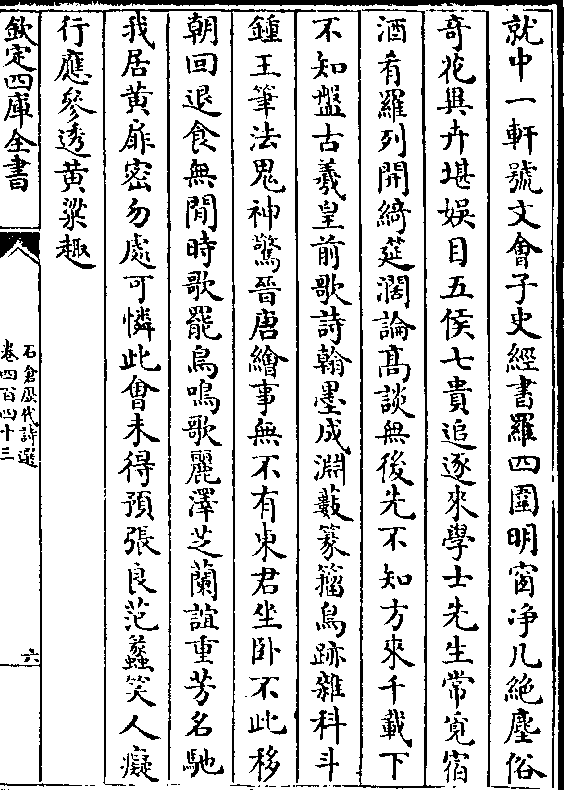 就中一軒號文會子史經書羅四圍明窗净几絶塵俗
奇花異卉堪娛目五侯七貴追逐來學士先生常寬宿
酒肴羅列開綺筵濶論髙談無後先不知方來千載下
不知盤古羲皇前歌詩翰墨成淵藪篆籀鳥跡雜科斗
鍾王筆法鬼神驚晉唐繪事無不有東君坐卧不此移
朝回退食無閒時歌罷鳥鳴歌麗澤芝蘭誼重芳名馳
我居黄扉密勿處可憐此會未得預張良范蠡笑人癡
行應參透黄粱趣
欽定四庫全書
石倉歷代詩選
卷四百四十三
六